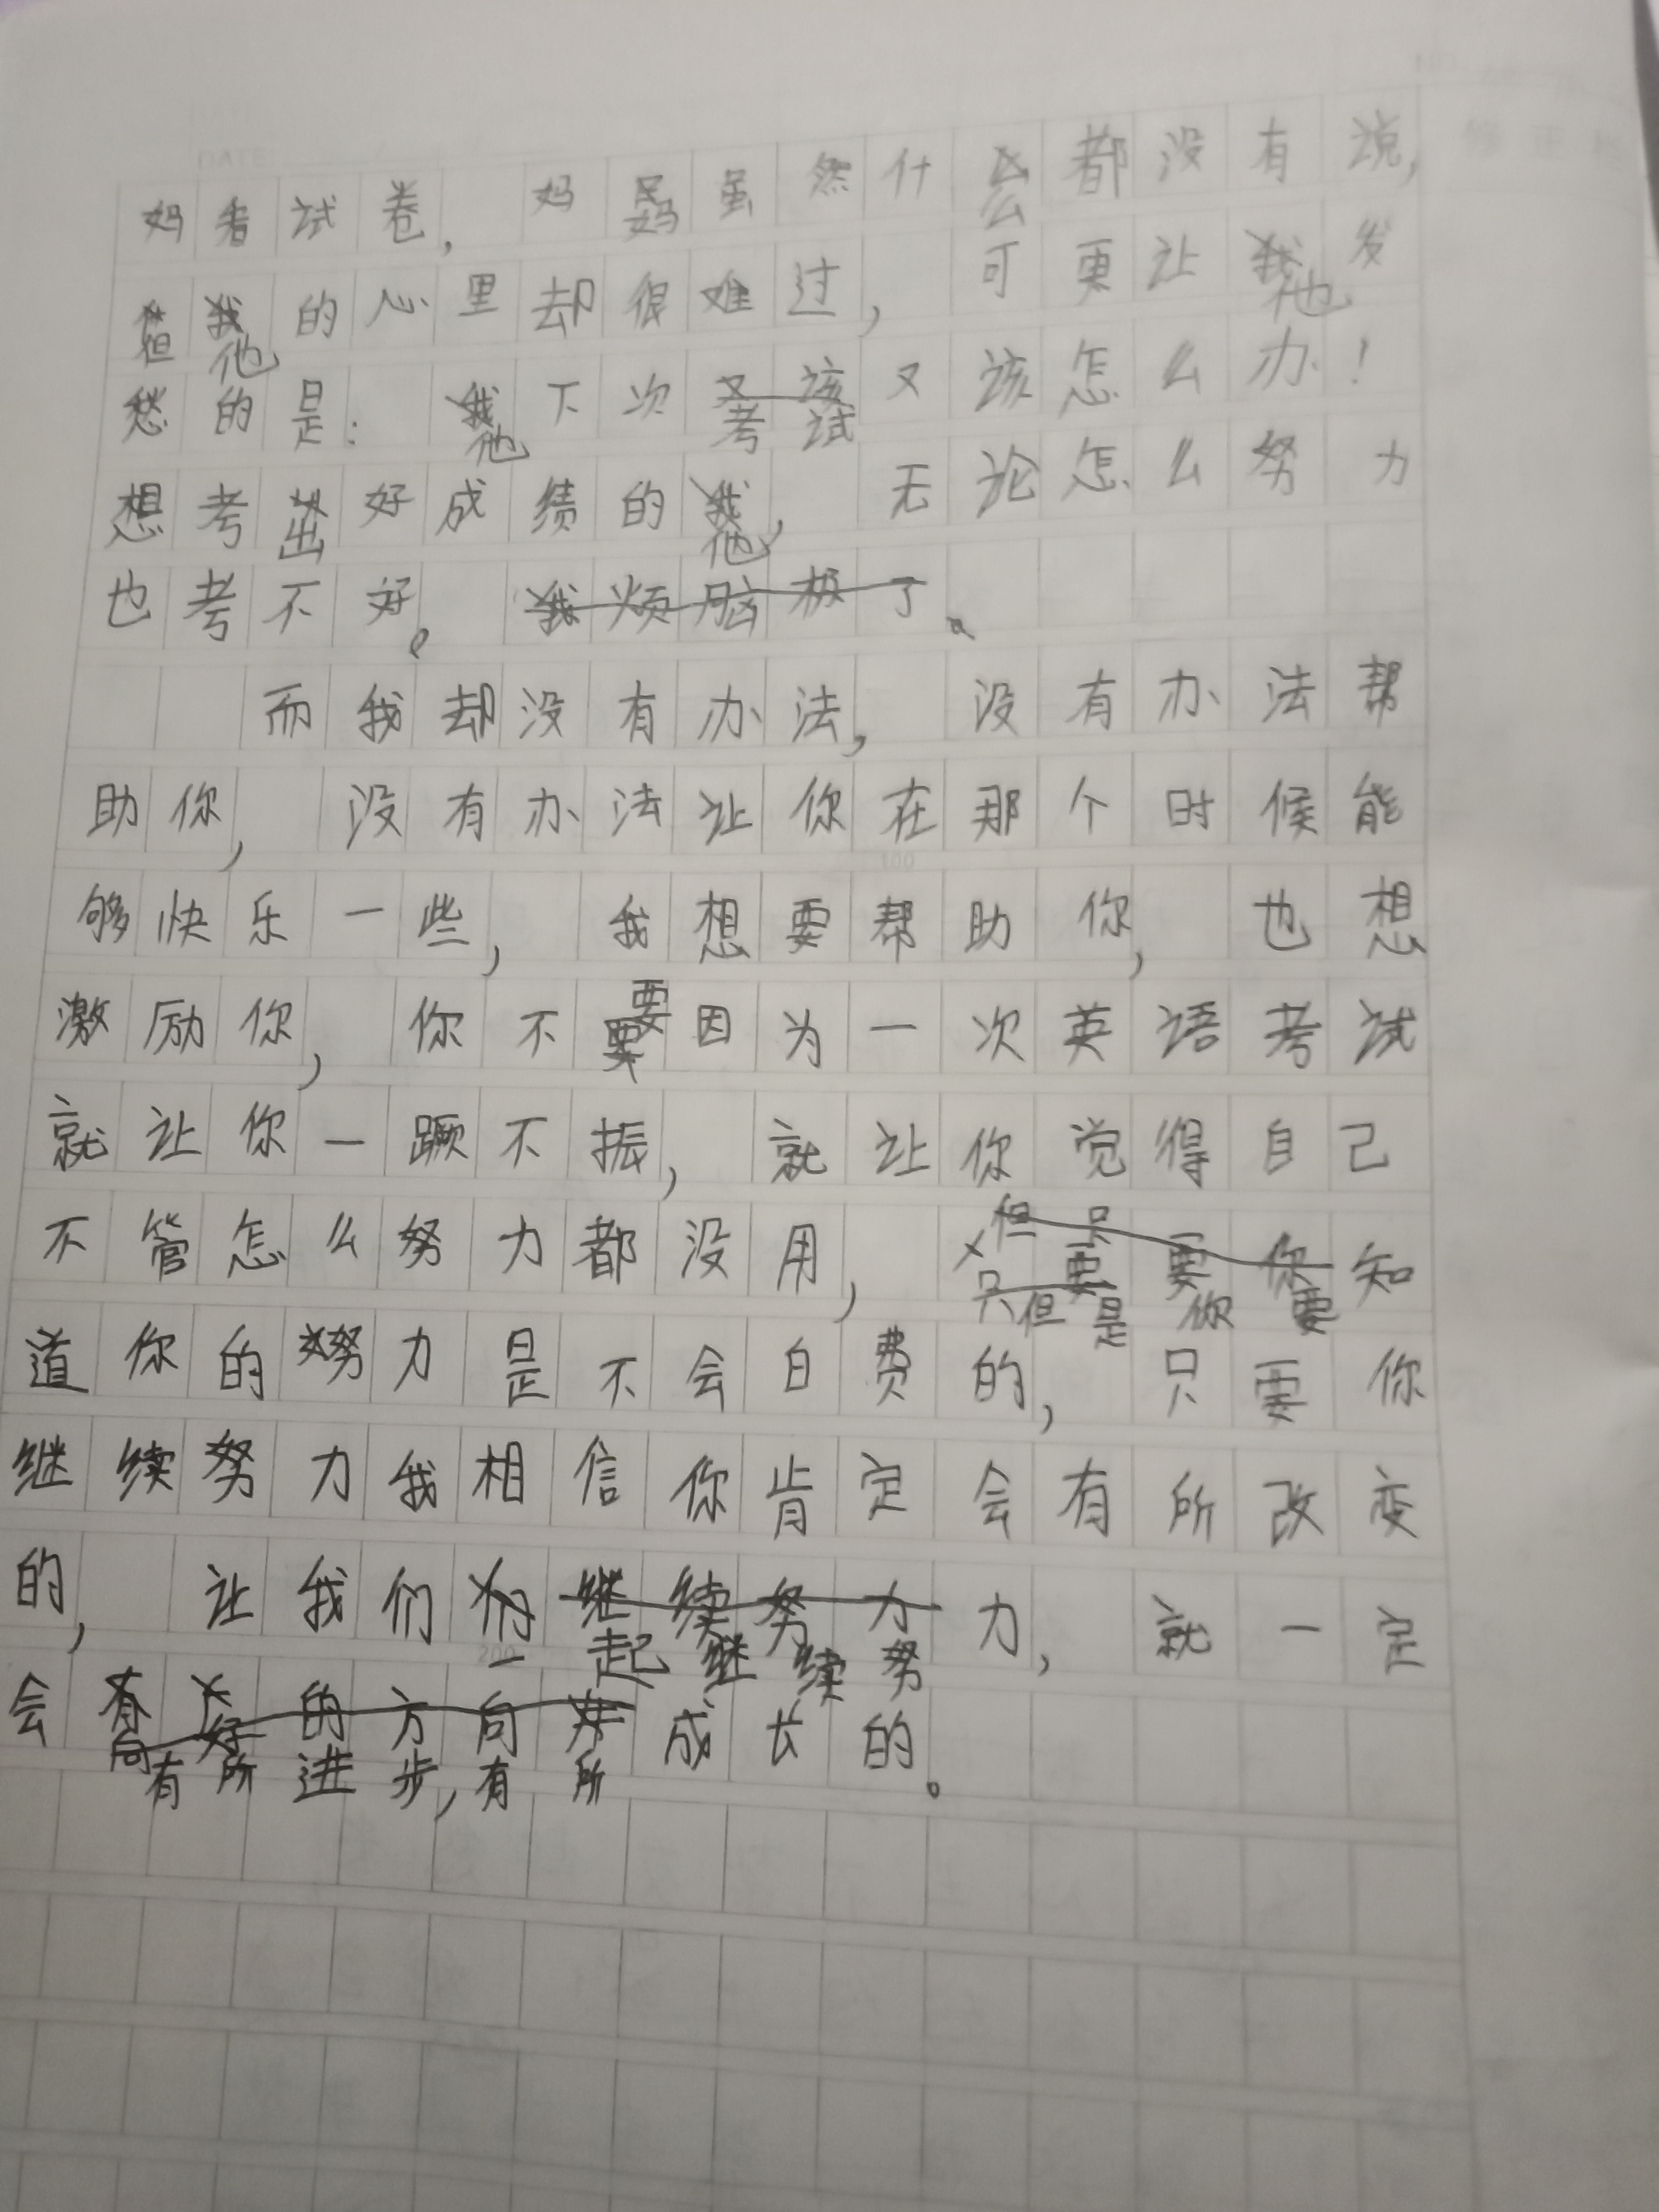 妈看试卷，妈妈虽然什么都没有说，
但他的心里却很难过，可更让他发
愁的是：他下次考试又该怎么办！
想考出好成绩的他，无论怎么努力
也考不好。我烦脑极了。
而我却没有办法，没有办法帮
助你，没有办法让你在那个时候能
够快乐一些，我想要帮助你，也想
激励你，你不要因为一次英语考试
就让你一蹶不振，就让你觉得自己
不管怎么努力都没用，但是你要知
道你的努力是不会白费的，只要你
继续努力我相信你肯定会有所改变
的，让我们一起继续努力，就一定
会有所进步，有所成长的。